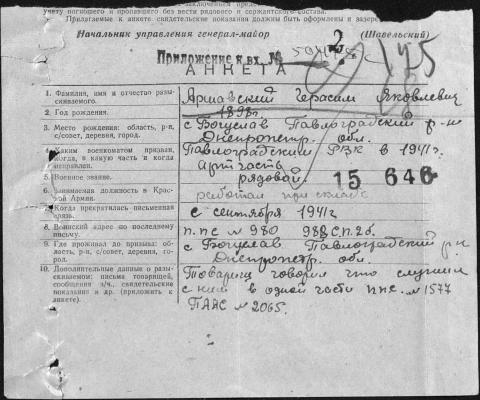 учету погибшего и пропавшего без вести рядового и сержантского состава.
Прилагаемые к анкете свидетельские показания должны быть оформлены и
Начальник управления генерал-майор (Шавельский)
Приложение к вх. №
175
АНКЕТА
1. Фамилия, имя и отчество разыскиваемого. Герасим Яковлевич
2. Год рождения. 1898г
3. Место рождения: область, р-н, с/совет, деревня, город. с Богуслав Павлоградский р-не Днепропетр. обл.
4. Каким военкоматом призван, когда, в какую часть и когда направлен. Павлоградский РВК в 1941г. Арт часть
5. Военное звание. рядовой
15 646
6. Занимаемая должность в Красной Армии. работал при складе
7. Когда прекратилась письменная связь. с сентября 1941г
8. Воинский адрес по последнему письму. п.п.с № 980 988 С.П. 2б.
9. Где проживал до призыва: область, р-н, с/совет, деревня, город. с Богуслав Павлоградский р-н Днепропетр. обл.
10. Дополнительные данные о разыскиваемом: письма товарищей, сообщения в/ч., свидетельские показания и др. (приложить к анкете). Товарищ говорил что служили с ним в одной части ппс. № 1577 ПААС № 2065.